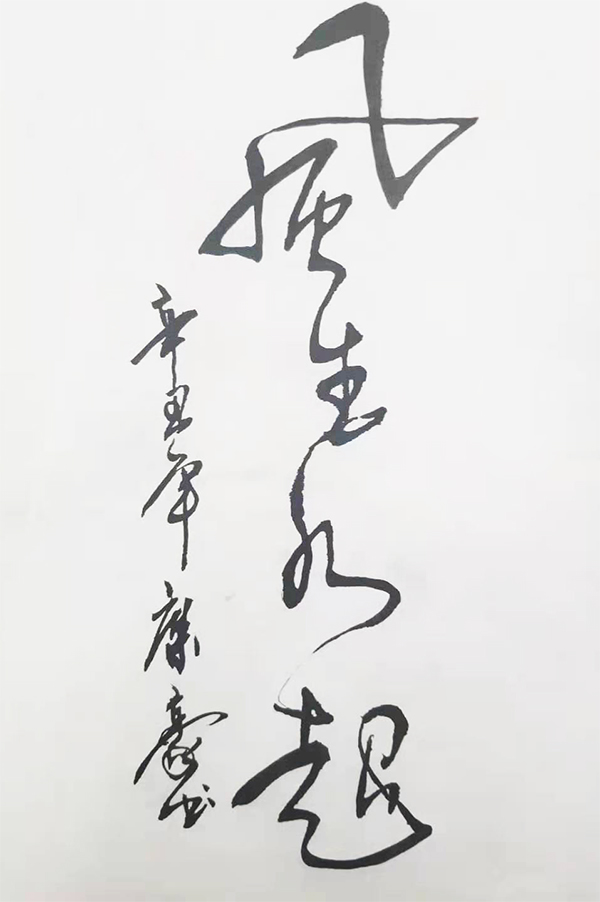 風生水起
辛丑年 康豪书